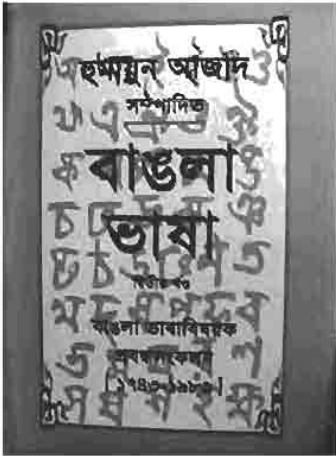 হুমায়ুন আজাদ
সম্পাদিত
বাঙলা
ভাষা
দ্বিতীয় খণ্ড
বাঙলা ভাষাবিষয়ক
প্রবন্ধসংকলন
[ ১৭৪৩-১৯৮৩ ]